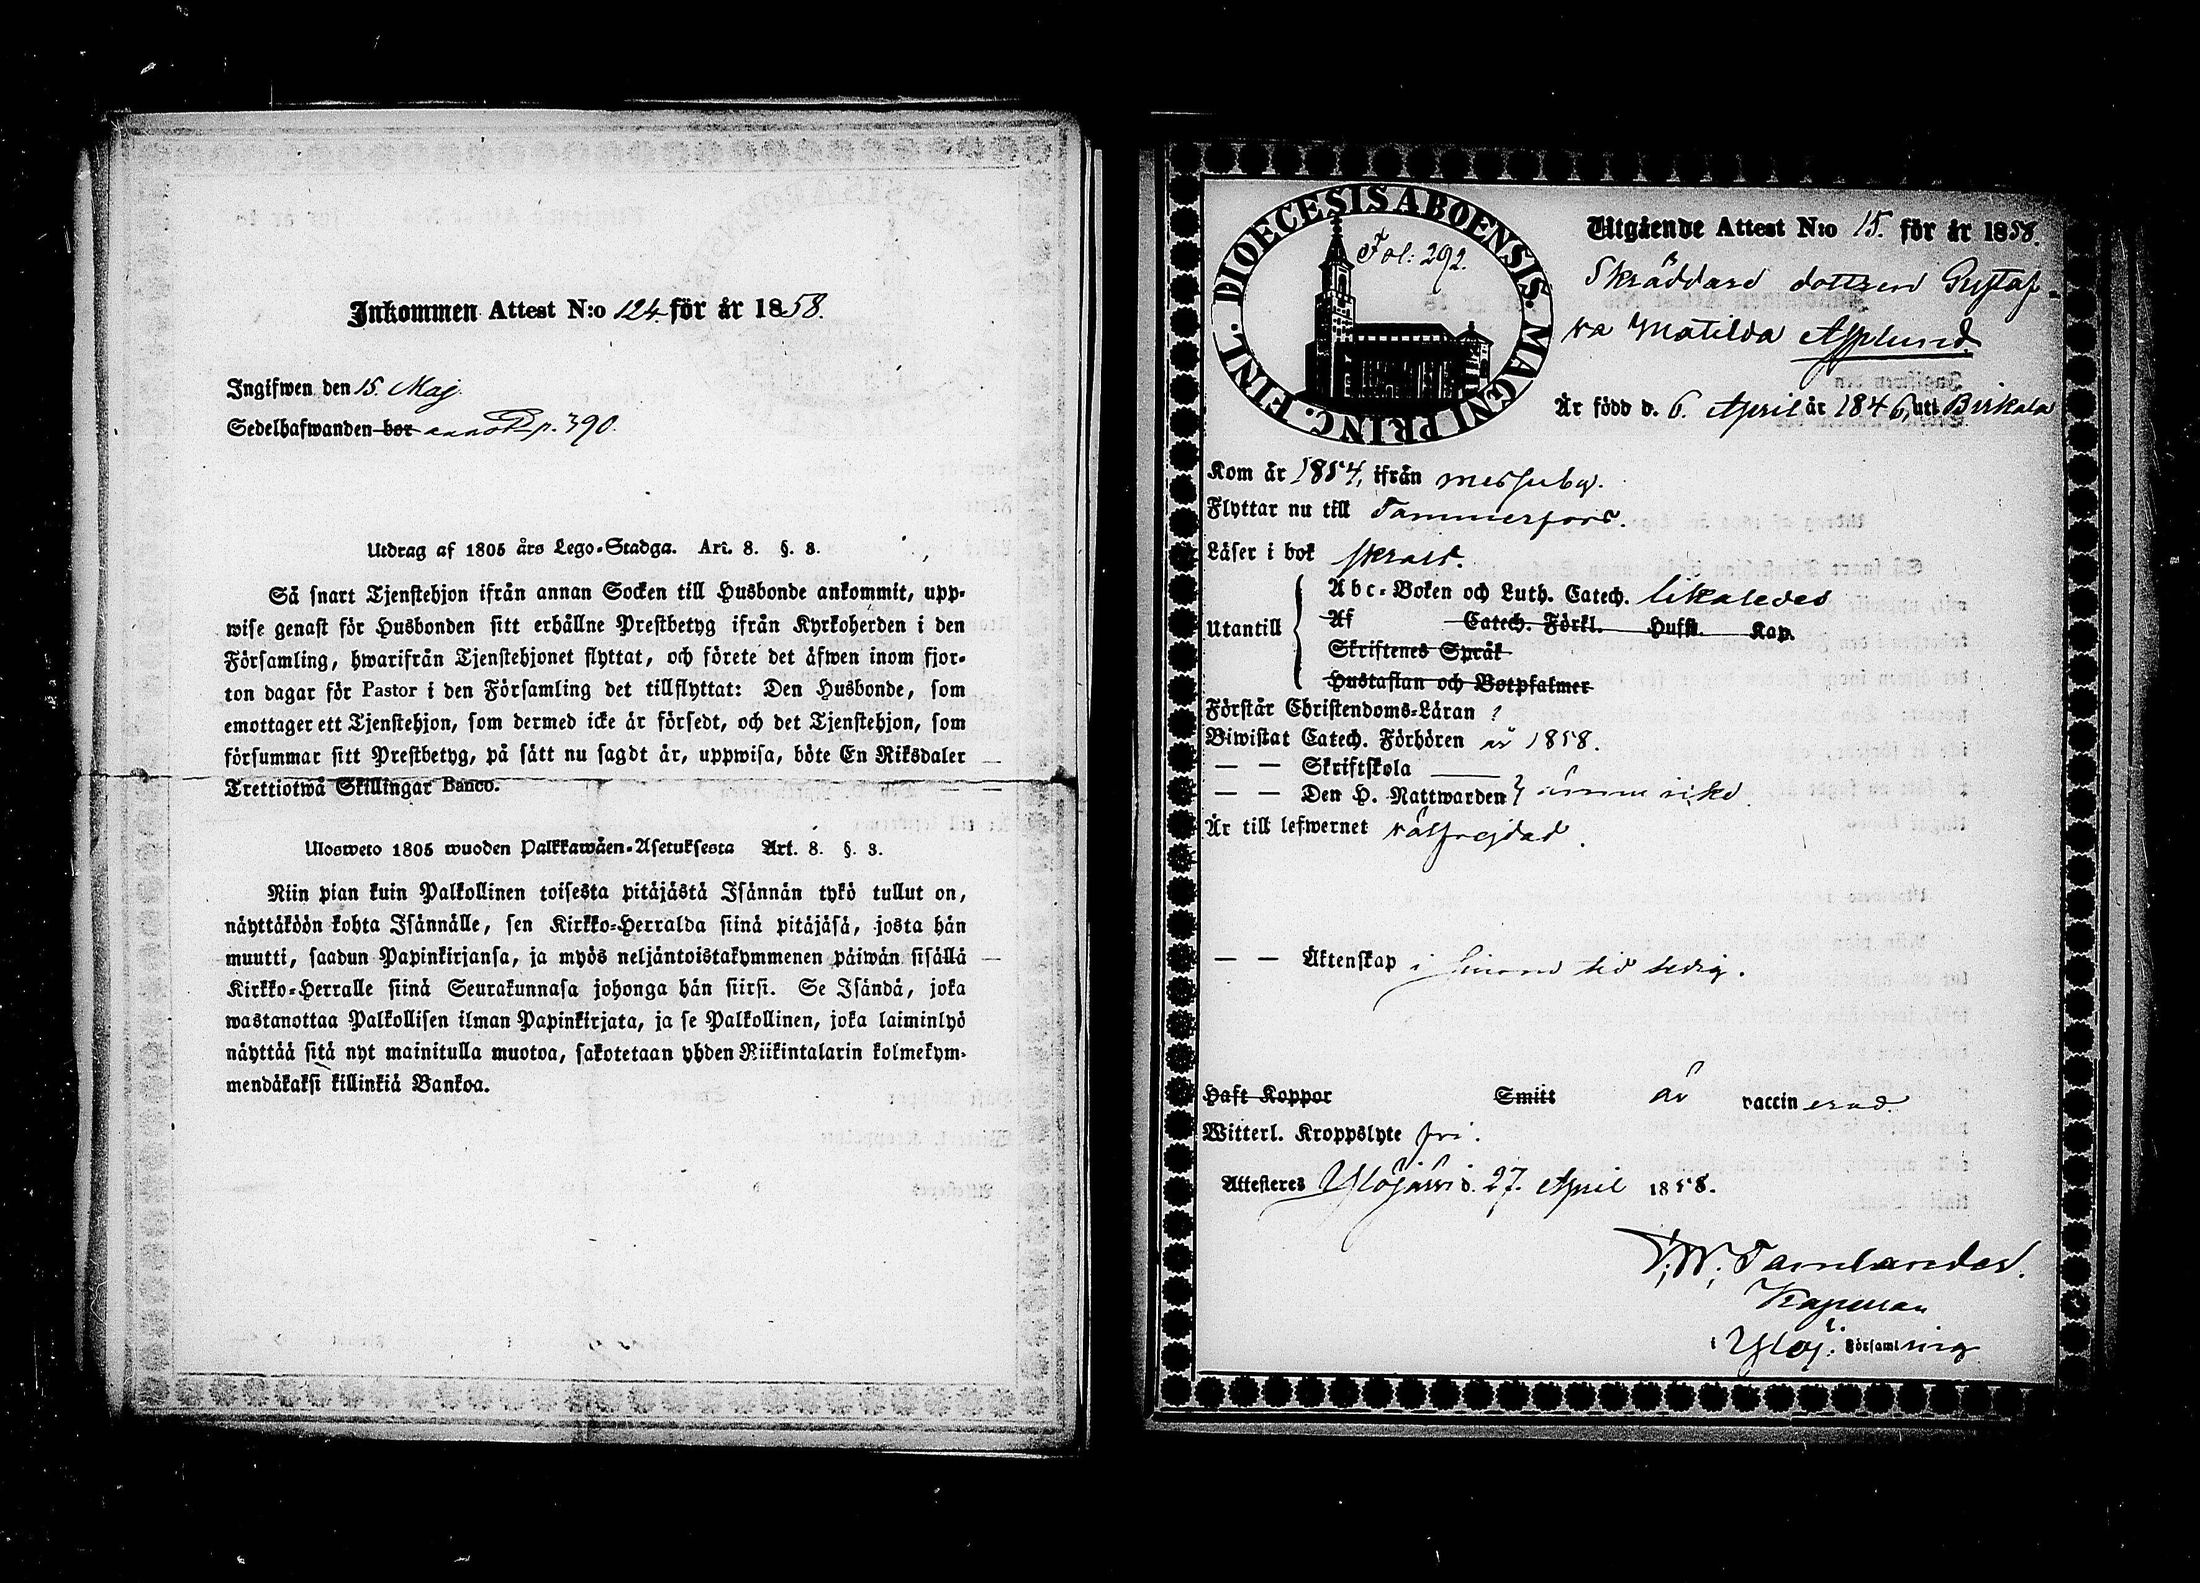 Inkommen Attest N:o 124. för år 1858.
Ingifwen den 15. Maj
Sedelhafwanden bor annot. p. 390.
Utdrag af 1805 års Lego-Stadga. Art. 8. §. 3.
Så snart Tjenstehjon ifrån annan Socken till Husbonde ankommit, upp-
wise genast för Husbonden sitt erhållne Prestbetyg ifrån Kyrkoherden i den
Församling, hwarifrån Tjenstehjonet flyttat, och förete det äfwen inom fjor-
ton dagar för Pastor i den Församling det tillflyttat: Den Husbonde, som
emottager ett Tjenstehjon, som dermed icke är försedt, och det Tjenstehjon, som
försummar sitt Prestbetyg, på sätt nu sagdt är, uppwisa, böte En Riksdaler
Trettiotwå Skillingar Banco.
Ulosweto 1805 wuoden Palkkawäen-Asetuksesta Art. 8. §. 3.
Niin pian kuin Palkollinen toisesta pitäjästä Isännän tykö tullut on,
näyttäköön kohta Isännälle, sen Kirkko-Herralda siinä pitäjäsä, josta hän
muutti, saadun Papinkirjansa, ja myös neljäntoistakymmenen päiwän sisällä
Kirkko-Herralle siinä Seurakunnasa johonga hän siirsi. Se Isändä, joka
wastanottaa Palkollisen ilman Papinkirjata, ja se Palkollinen, joka laiminlyö
näyttää sitä nyt mainitulla muotoa, sakotetaan yhden Riikintalarin kolmekym-
mendäkaksi killinkiä Bankoa.
DIOECESIS ABOENSIS. MAGNI PRINC. FINL.
Fol: 292.
Utgående Attest N:o 15. för år 1858.
Skräddare dottren Gustaf-
va Matilda Applund
Är född d. 6. April år 1846, uti Birkala
Kom år 1854, ifrån Messuby.
Flyttar nu till Tammerfors.
Läser i bok svart.
Utantill
Abc-Boken och Luth. Catech. likaledes
Af Catech. Förkl. Hufst. Kap.
Skriftenes Språk
Hustaflan och Botpsalmer
Förstår Christendoms-Läran ?
Biwistat Catech. Förhören år 1858.
— — Skriftskola
— — Den H. Nattwarden } ännu icke
Är till lefwernet välfrejdad.
— — Äktenskap i sinom tid ledig.
Haft Koppor Smitt är vaccinerad.
Witterl. Kroppslyte fri.
Attesteres Ylöjärvi d. 27. April 1858.
Tamlander.
Kapellan
i Ylöj. Församling